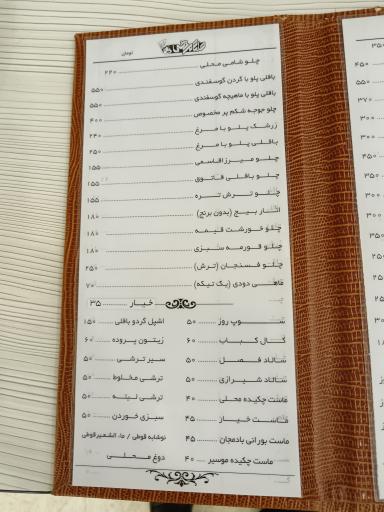 تومان
چلو شامی محلی ۲۲۰
باقلی پلو با گردن گوسفندی ۵۵۰
باقلی پلو با ماهیچه گوسفندی ۵۵۰
چلو جوجه شکم پر مخصوص ۴۰۰
زرشک پلو با مرغ ۲۴۰
باقلی پلو با مرغ ۲۵۰
چلو میرزاقاسمی ۱۵۵
چلو باقلی قاتوق ۱۵۵
چلو ترش تره ۱۵۵
انار بیج (بدون برنج) ۱۸۰
چلو خورشت قیمه ۱۸۰
چلو قورمه سبزی ۱۸۰
چلو فسنجان (ترش) ۲۵۰
ماهی دودی (یک تیکه) ۷۰
خیار ۳۵
سوپ روز ۵۰
کال کباب ۶۰
سالاد فصل ۵۰
سالاد شیرازی ۵۰
ماست چکیده محلی ۴۰
ماست خیار ۴۵
ماست بورانی بادمجان ۴۵
ماست چکیده موسیر ۴۰
اشپل گردو باقلی ۱۵۰
زیتون پروده ۶۰
سیر ترشی ۵۰
ترشی مخلوط ۵۰
ترشی لیته ۵۰
سبزی خوردن ۵۰
نوشابه قوطی / ماءالشعیر قوطی
دوغ محلی
۳۵۰
۴۵۰
۵۵۰
۳۷۰
۳۰۰
۳۰۰
۴۵۰
۳۵۰
۳۰۰